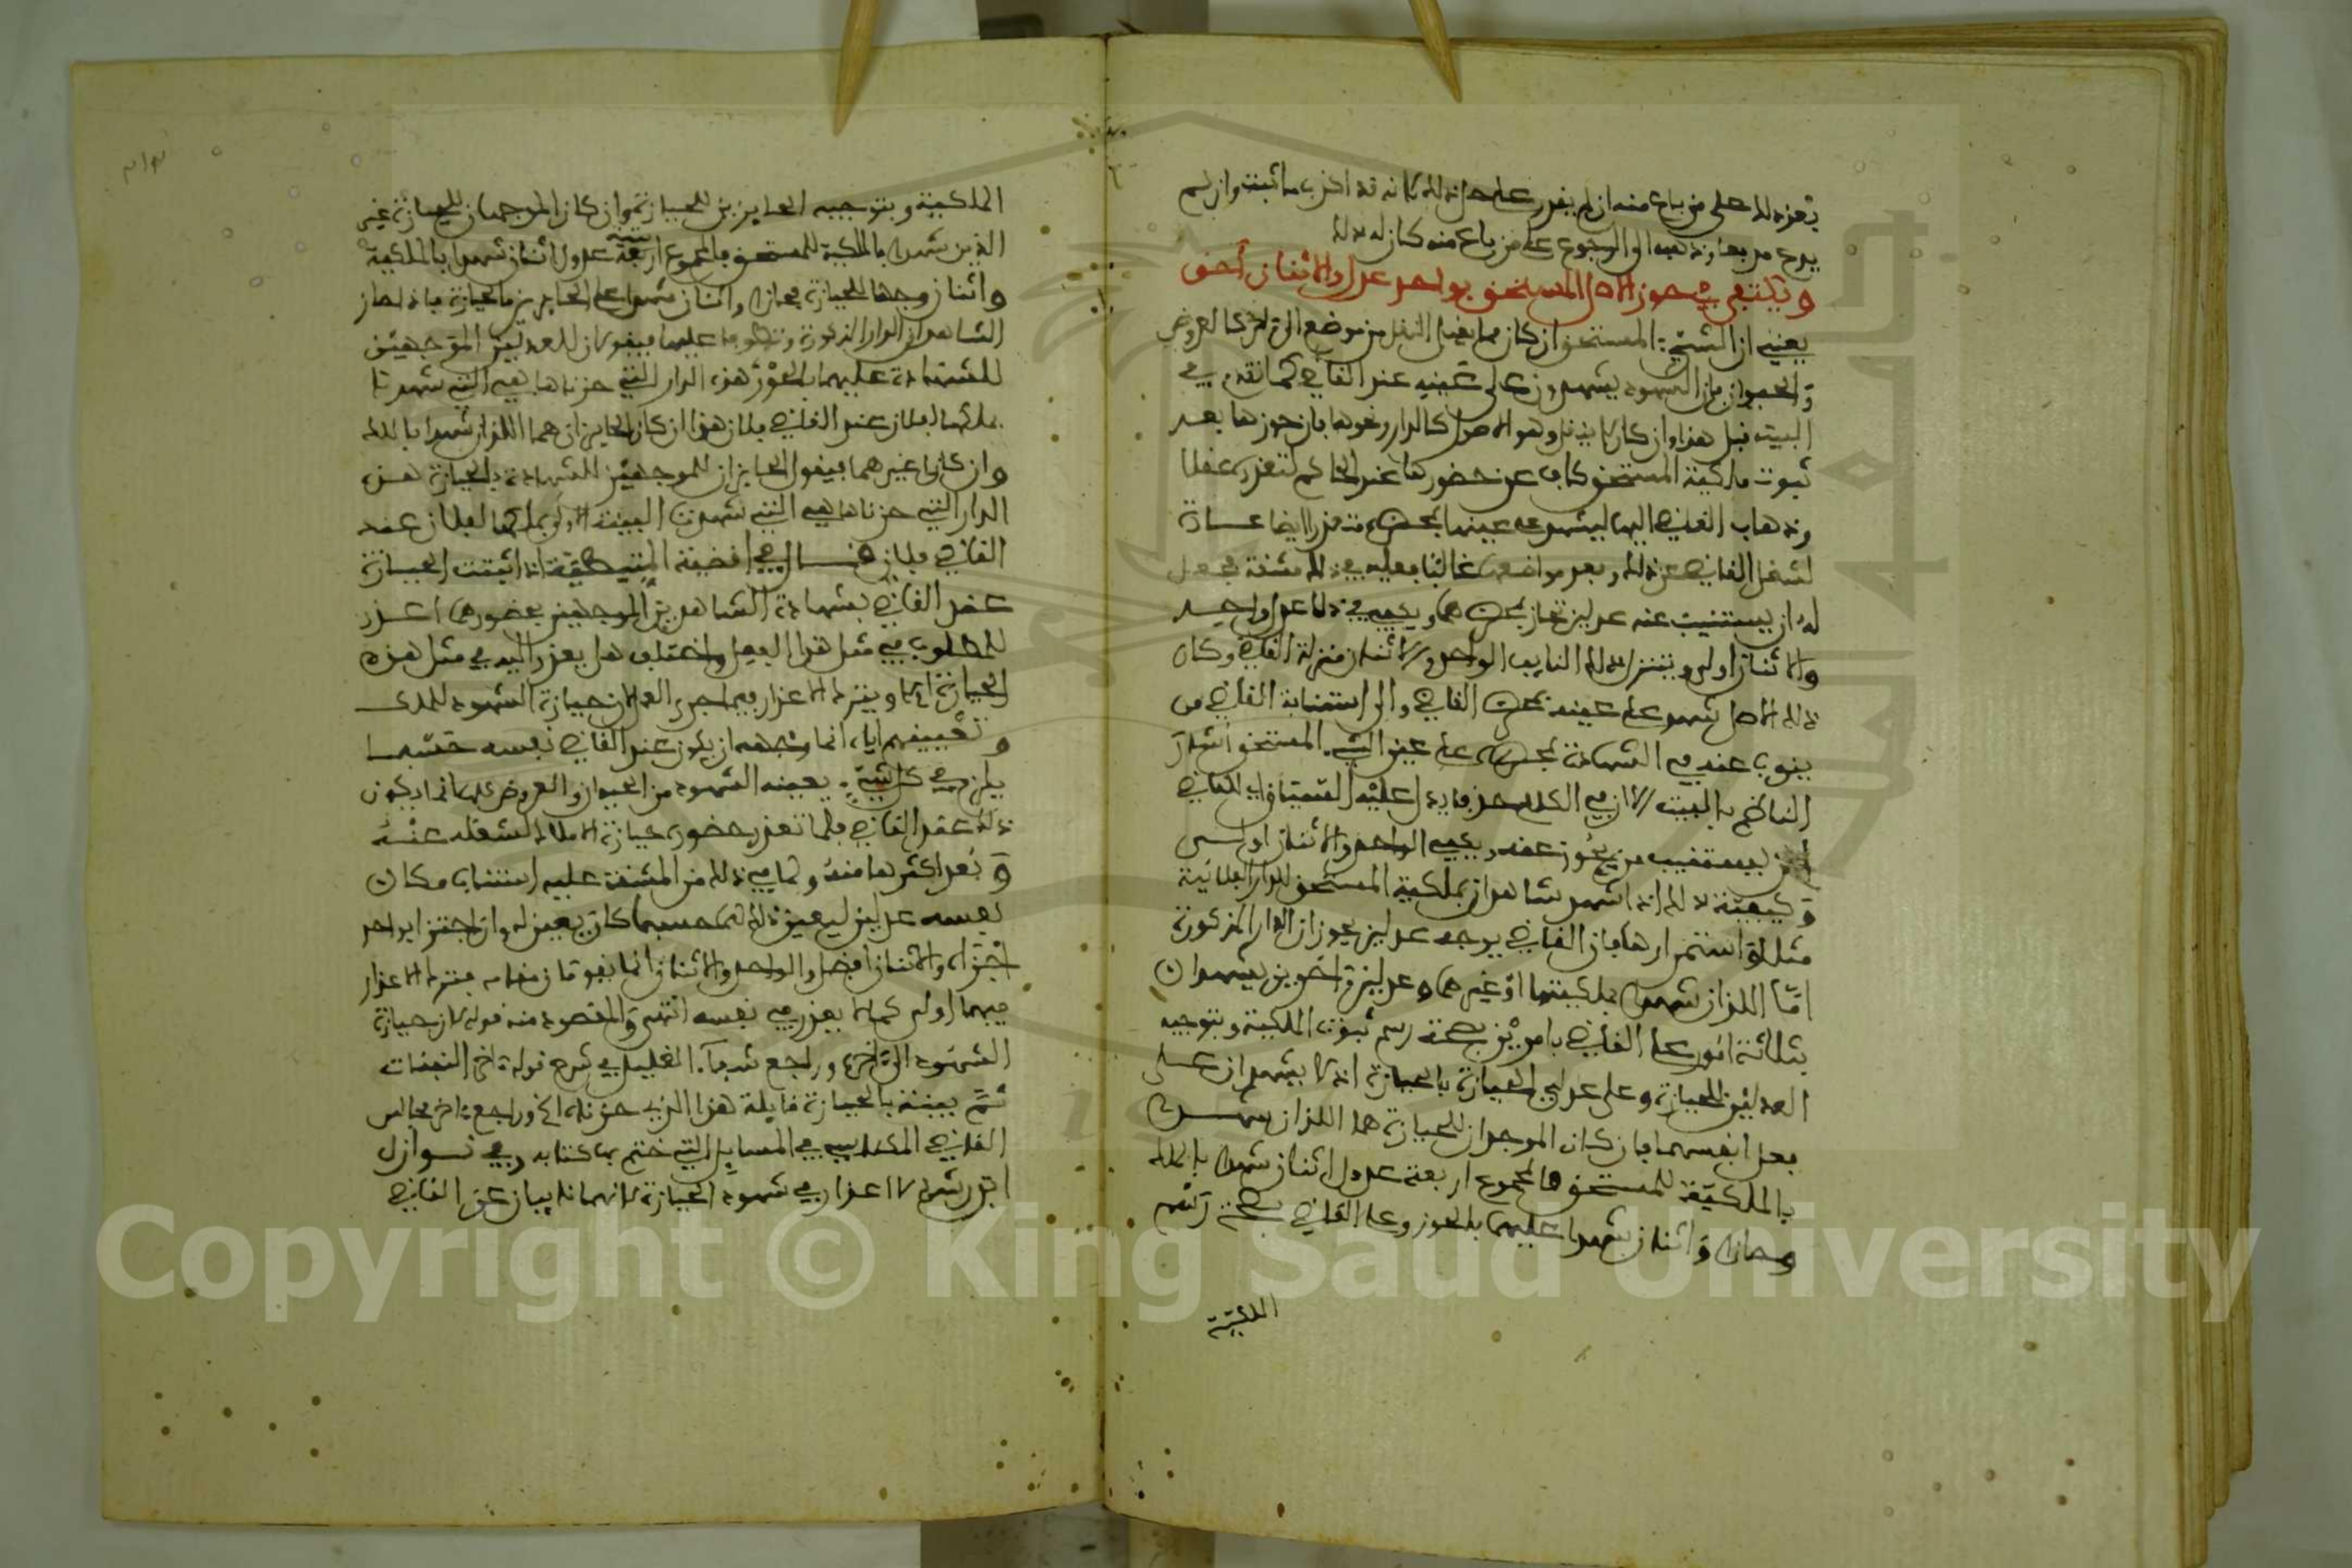 بعد ذلك على من باع منه ان لم يقدر على حل ذلك لانه قد اكذب ما ثبت وان لم
يدع مدفعا وذهب الى الرجوع على من باع منه كان له ذلك
ويكتفى في حوز الاصل المستحق بواحد عدل والاثنان أحق
يعني ان الشيء المستحق ان كان مما يقبل النقل من موضع الى آخر كالعروض
والحيوان فان الشهود يشهدون على عينه عند القاضي كما تقدم في
البيت قبل هذا وان كان لا ينقل وهو الاصل كالدار ونحوها فان حوزها بعد
ثبوت ملكية المستحق كاف عن حضورها عند الحاكم لتعذره عقلا
وذهاب القاضي اليها ليشهد على عينها بمحضره متعذر ايضا عادة
لشغل القاضي عن ذلك وبعد مواضعها غالبا فعليه في ذلك مشقة فجعل
له ان يستنيب عنه عدلين تحاز بمحضرهما ويكفي في ذلك عدل واحد
والاثنان اولى ويتنزل ذلك النايب الواحد والاثنان منزلة القاضي وكان
ذلك الاصل شهد على عينه بمحضر القاضي والى استنابة القاضي من
ينوب عنه في الشهادة بمحضره على عين الشيء المستحق اشار
الناظم بالبيت الا ان في الكلام حذف ما يدل عليه السياق اي للقاضي
ان يستنيب من يحوز عنه ويكفي الواحد والاثنان اولى
وكيفية ذلك انه اذا شهد شاهدان بملكية المستحق للدار الفلانية
مثلا واستمرارها فان القاضي يوجه عدلين يحوزان الدار المذكورة
اما اللذان شهدا بملكيتها او غيرهما وعدلين آخرين يشهدان
بثلاثة امور على القاضي بامرين بصحة رسم ثبوت الملكية وبتوجيه
العدلين للحيازة وعلى عدلي الحيازة بالحيازة اذ لا يشهدان على
فعل انفسهما فان كان الموجهان للحيازة هما اللذان شهدا
بالملكية للمستحق فالمجموع اربعة عدول اثنان شهدا بالملك
وحازا واثنان شهدا عليهما بالحوز وعلى القاضي بصحة رسم
الملكية
الملكية وبتوجيه الحايزين للحيازة وان كان الموجهان للحيازة غير
الذين شهدا بالملكية للمستحق فالمجموع ستة عدول اثنان شهدا بالملكية
واثنان وجها للحيازة فحازا واثنان شهدا على الحايزين بالحيازة فاذا حاز
الشاهدان الدار المذكورة وتطوفا عليها فيقولان للعدلين الموجهين
للشهادة عليهما بالحوز هذه الدار التي حزناها هي التي شهدنا
بملكها لفلان عند القاضي فلان هذا ان كان الحايزان هما اللذان شهدا بالملك
وان كانا غيرهما فيقول الحايزان للموجهين للشهادة بالحيازة هذه
الدار التي حزناها هي التي شهدت البينة الاولى بملكها لفلان عند
القاضي فلان قال في اقضية المتيطية اذا اثبتت الحيازة
عند القاضي بشهادة الشاهدين الموجهين بحضورها اعذر
للمطلوب في مثل هذا الفصل واختلف هل يعذر اليه في مثل هذه
الحيازة ام لا ويترك الاعذار فيها جرى العمل لان حيازة الشهود للملك
وتعيينهم اياه انما وجهه ان يكون عند القاضي نفسه حسبما
يلزم في كل شيء يعينه الشهود من الحيوان والعروض كلها انما يكون
ذلك عند القاضي فلما تعذر حضوره حيازة الاملاك لشغله عنه
وبعد اكثرها منه ولما في ذلك من المشقة عليه استناب مكان
نفسه عدلين ليعين ذلك لهما حسبما كان يعين له وان اجتزا بواحد
اجزاه والاثنان افضل والواحد والاثنان انما يقومان مقامه فترك الاعذار
فيهما اولى كما لا يعذر في نفسه انتهى والمقصود منه قوله لان حيازة
الشهود الى آخره وراجع شفاء الغليل في شرح قوله آخر النفقات
ثم بينة بالحيازة قايلة هذا الذي حزناه الخ وراجع آخر مجالس
القاضي المكناسي في المسايل التي ختم بها كتابه وفي نوازل
ابن رشد لا اعذار في شهود الحيازة لانهما نايبان عن القاضي
Copyright © King Saud University